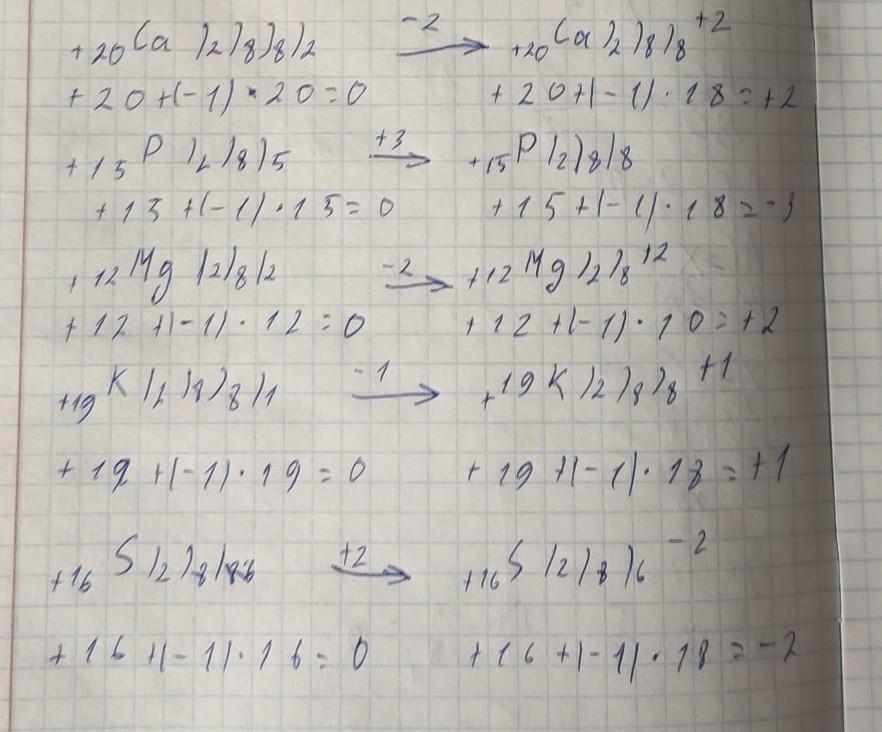 +20 Ca )2)8)8)2 -2 → +20 Ca )2)8)8 +2
+20+(-1)·20=0 +20+(-1)·18=+2
+15 P )2)8)5 +3 → +15 P )2)8)8
+15+(-1)·15=0 +15+(-1)·18=-3
+12 Mg )2)8)2 -2 → +12 Mg )2)8 +2
+12+(-1)·12=0 +12+(-1)·10=+2
+19 K )2)8)8)1 -1 → +19 K )2)8)8 +1
+19+(-1)·19=0 +19+(-1)·18=+1
+16 S )2)8)6 +2 → +16 S )2)8)6 -2
+16+(-1)·16=0 +16+(-1)·18=-2